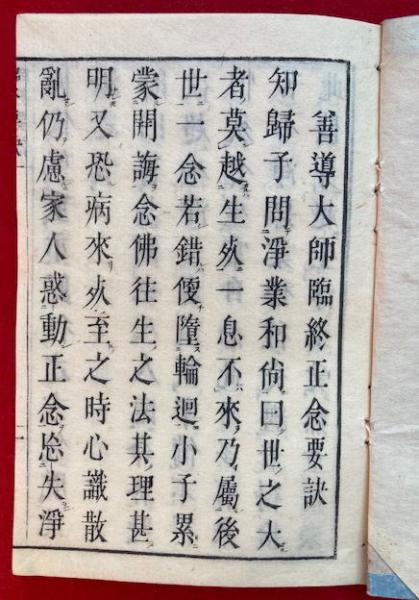 善導大師臨終正念要訣
知歸子問淨業和尙曰世之大
者莫越生死一息不來乃屬後
世一念若錯便墮輪迴小子累
蒙開誨念佛往生之法其理甚
明又恐病來死至之時心識散
亂仍慮家人惑動正念忘失淨